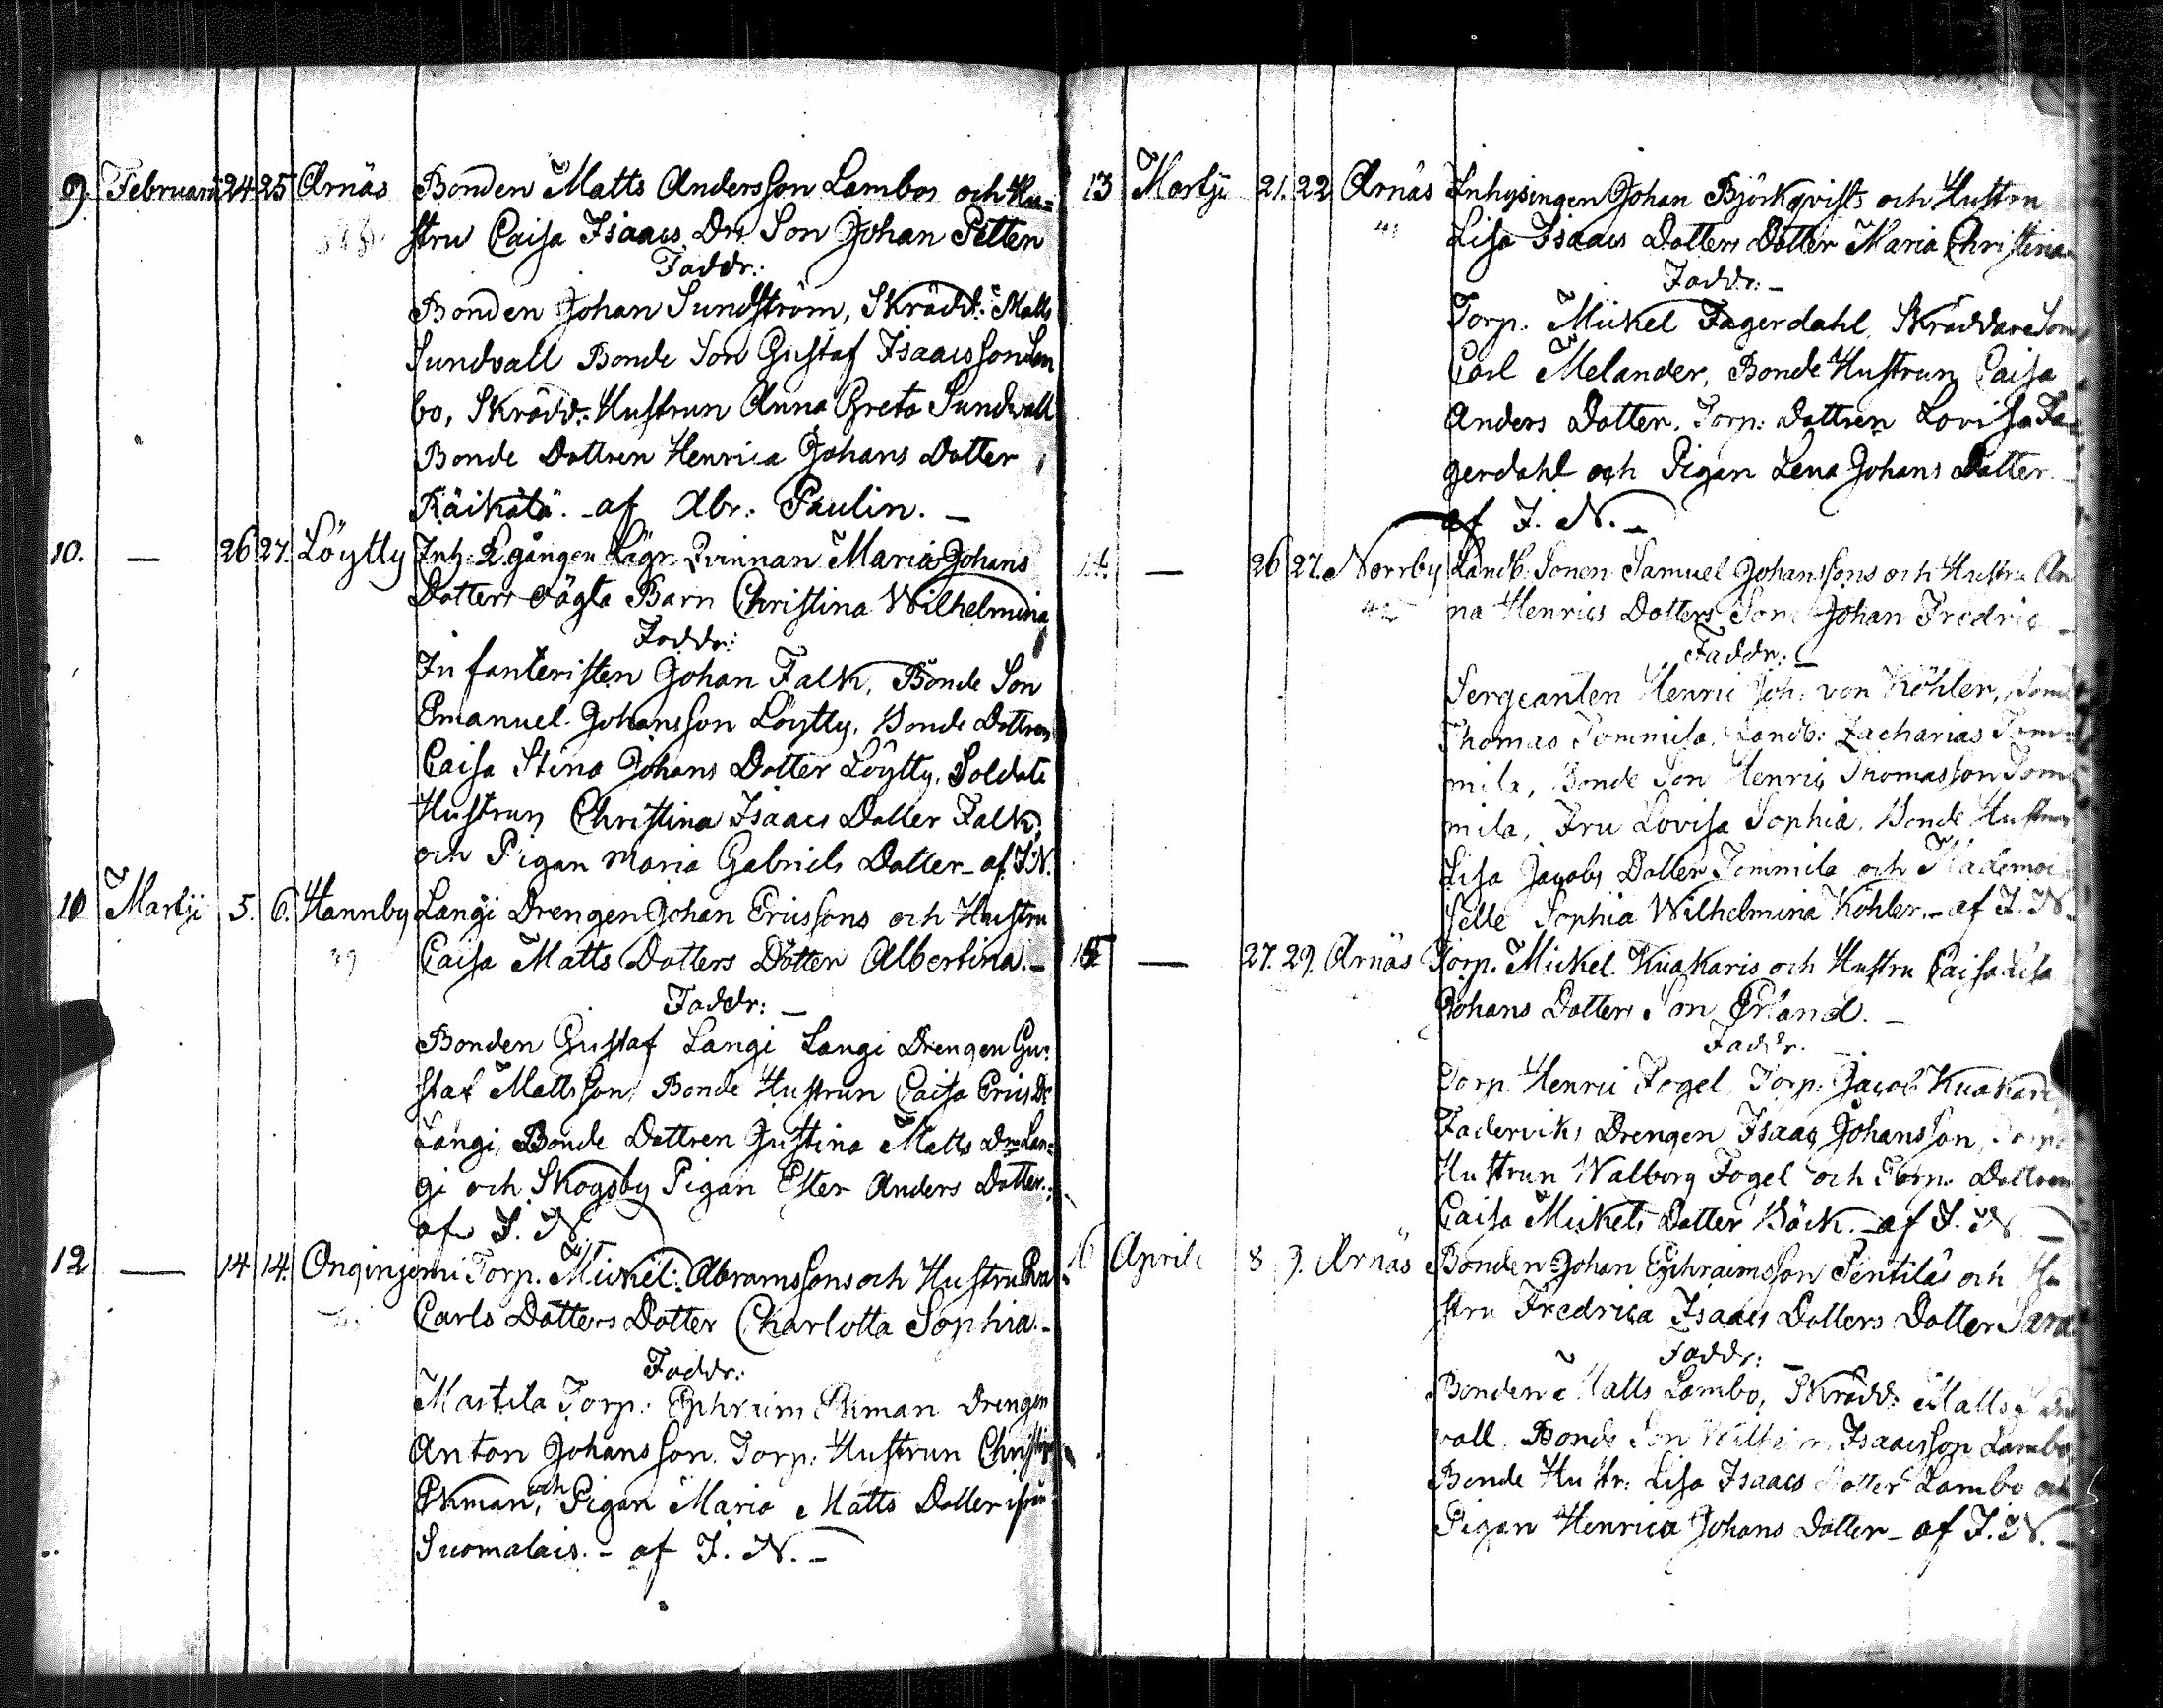 9. Februarii 24 25 Arnäs Bonden Matts Andersson Lambos och Hu=
stru Caisa Isaacs Drs Son Johan Petter
Faddr:
Bonden Johan Sundström, Skrädd: Matts
Sundvall Bonde Son Gustaf Isaacsson Lam
bo, Skrädd: Hustrun Anna Greta Sundvall
Bonde Dottren Henrica Johans Dotter
Räikälä. - af Abr: Paulin. -
10. — 26 27. Löytty Inh: 2 gången Lägr. Qvinnan Maria Johans
Dotters oägta Barn Christina Wilhelmina
Faddr:
Infanteristen Johan Falk, Bonde Son
Emanuel Johansson Löytty, Bonde Dottren
Caisa Stina Johans Dotter Löytty, Soldats
Hustrun Christina Isaacs Dotter Falk,
och Pigan Maria Gabriels Dotter - af I.N.
10 Martii 5. 6. Hannby Langi Drengen Johan Ericssons och Hustru
39 Caisa Matts Dotters Dotter Albertina. -
Faddr: -
Bonden Gustaf Langi Langi Drengen Gu=
staf Mattsson, Bonde Hustrun Caisa Erics Dr
Langi, Bonde Dottren Justina Matts Dr Lan=
gi och Skogsby Pigan Ester Anders Dotter.
af I. N
12 — 14 14. Onginjemi Torp. Mickel Abramssons och Hustru
Carls Dotters Dotter Charlotta Sophia. -
Faddr:
Mastila Torp: Ephraim Ekman Drengen
Anton Johansson, Torp: Hustrun Christi
Ekman, och Pigan Maria Matts Dotter ifrån
Suomalais. - af I. N. -
13 Martii 21. 22 Arnäs Inhysingen Johan Björkqvists och Hustru
Lisa Isaacs Dotters Dotter Maria Christina
Faddr: -
Torp. Mickel Fagerdahl, Skräddare Son
Carl Melander, Bonde Hustrun Caisa
Anders Dotter, Torp: Dottren Lovisa Fa=
gerdahl och Pigan Lena Johans Dotter -
af I. N. -
— 26 27. Norrby Landb. Sonen Samuel Johanssons och Hustru An
na Henrics Dotters Son Johan Fredric -
Faddr: -
Sergeanten Henric Joh: von Köhler,
Thomas Tommila, Landb: Zacharias Tom=
mila, Bonde Son Henric Thomasson Tom
mila, Fru Lovisa Sophia, Bonde Hustrun
Lisa Jacobs Dotter Tommila och Mademoi
selle Sophia Wilhelmina Köhler. - af I. N.
15 — 27. 29. Arnäs Torp. Mickel Kuakaris och Hustru Caisa Lisa
Johans Dotters Son Erland. -
Faddr.
Torp. Henric Fogel, Torp: Jacob Kuakari,
Faderviks Drengen Isaac Johansson, Torp:
Hustrun Walborg Fogel och Torp. Dottren
Caisa Mickels Dotter Bäck. - af I. N -
Aprili 8 9. Arnäs Bonden Johan Ephraimsson Pentiläs och Hu
stru Fredrica Isaacs Dotters Dotter Sara
Faddr: -
Bonden Matts Lambo, Skrädd: Matts
vall, Bonde Son Isaacsson Lambo,
Bonde Hustr: Lisa Isaacs Dotter Lambo och
Pigan Henrica Johans Dotter - af I. N. -